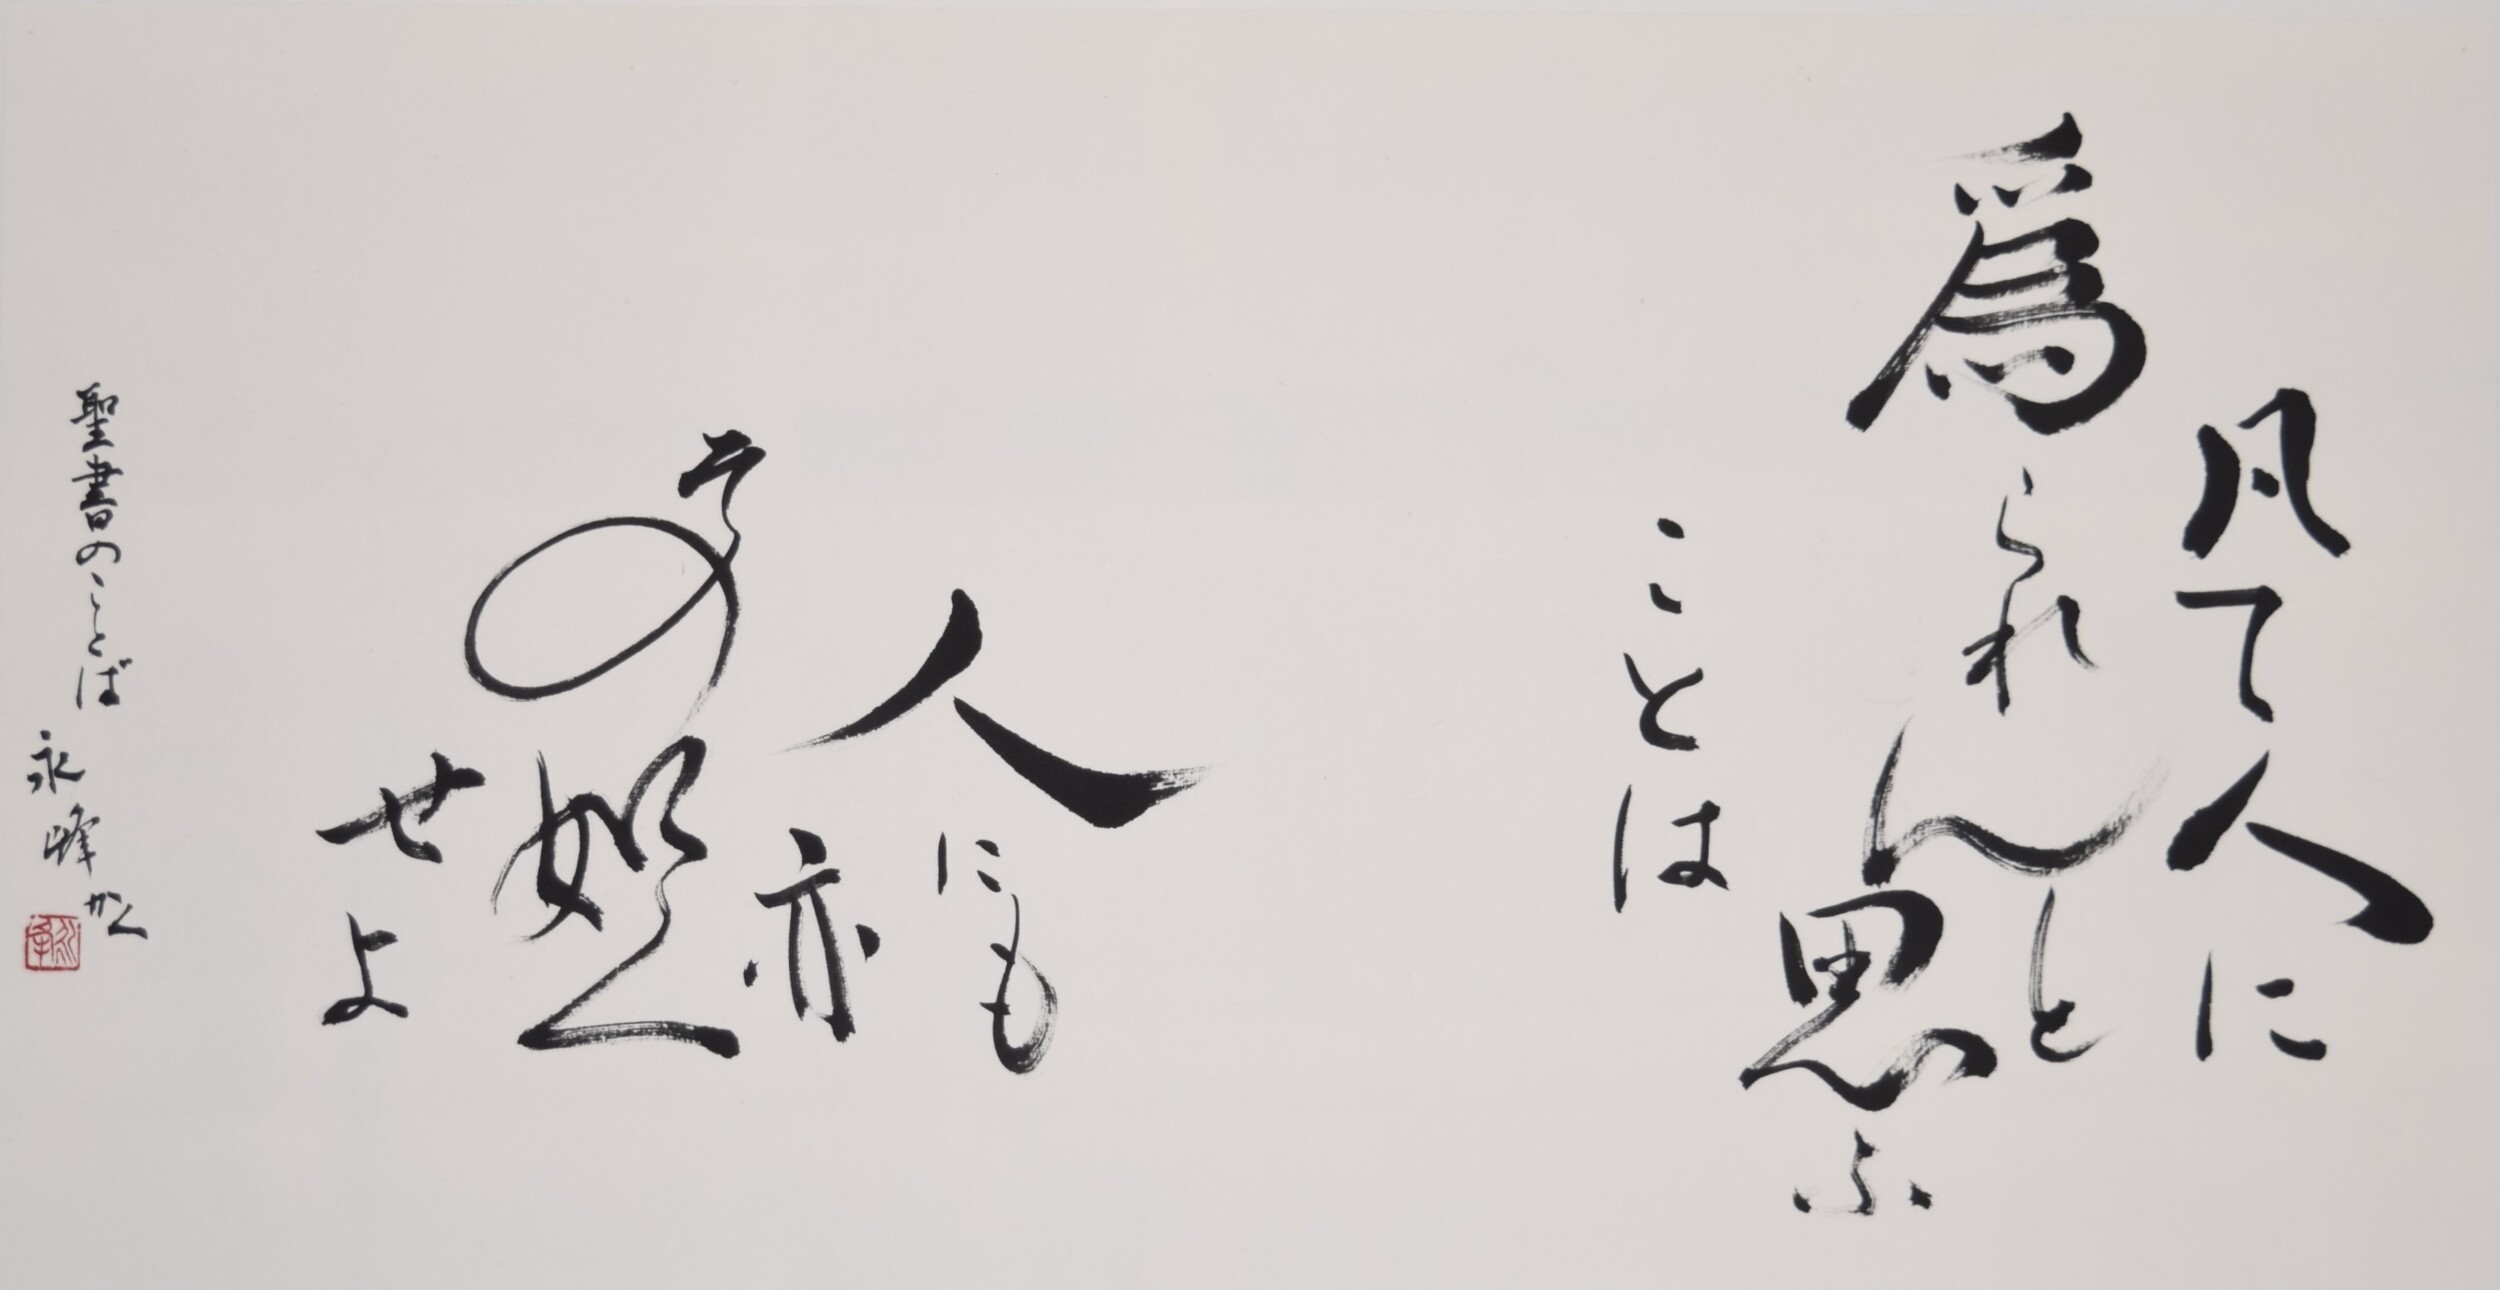 凡て人に
爲られんと
思ふ
ことは
人にも
亦
その如く
せよ
聖書のことば
永峰かく